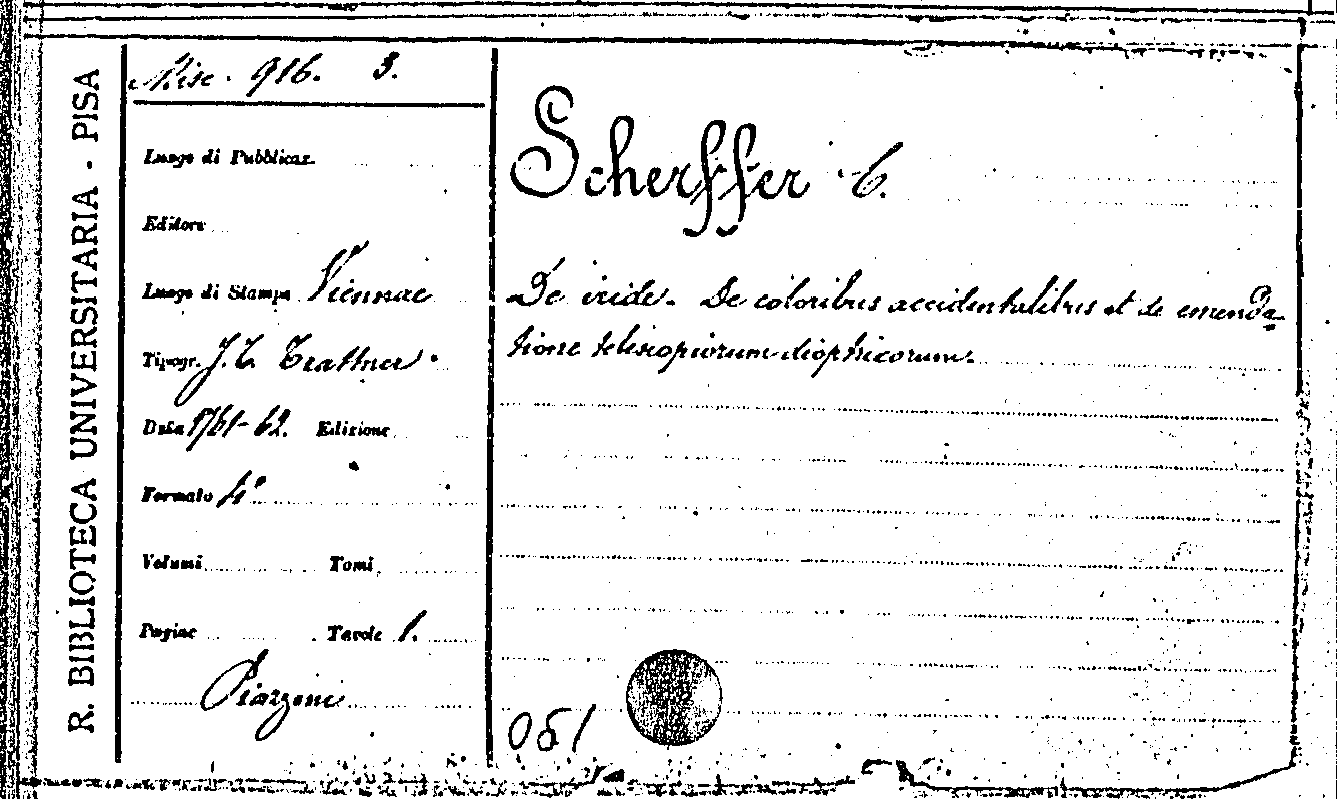 R. BIBLIOTECA UNIVERSITARIA - PISA
Misc. 916. 3.
Luogo di Pubblicaz.
Editore
Luogo di Stampa Viennae
Tipogr. J. T. Trattner
Data 1761-62. Edizione
Formato 4°
Volumi Tomi
Pagine Tavole 1.
Piazzini
Scherffer C.
De iride. De coloribus accidentalibus et de emenda-
tione telescopiorum dioptricorum.
051